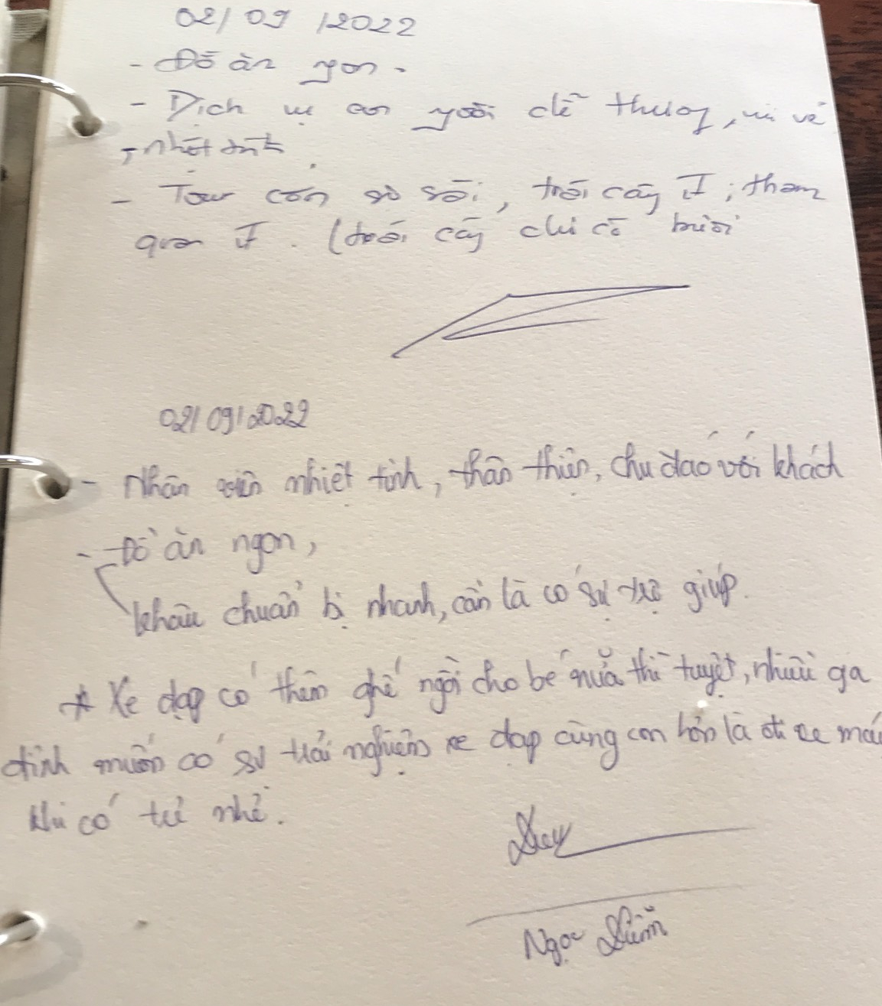 02/09/2022
- Đồ ăn ngon.
- Dịch vụ con người dễ thương, vui vẻ
, nhiệt tình
- Tour còn sơ sài, trái cây ít, tham
quan ít. (trái cây chỉ có bưởi
02/09/2022
- Nhân viên nhiệt tình, thân thiện, chu đáo với khách
- Đồ ăn ngon,
khâu chuẩn bị nhanh, cần là có sự trợ giúp.
* Xe đạp có thêm ghế ngồi cho bé nữa thì tuyệt, nhiều gia
đình muốn có sự trải nghiệm xe đạp cùng con hơn là đi xe máy
khi có trẻ nhỏ.
Ngọc